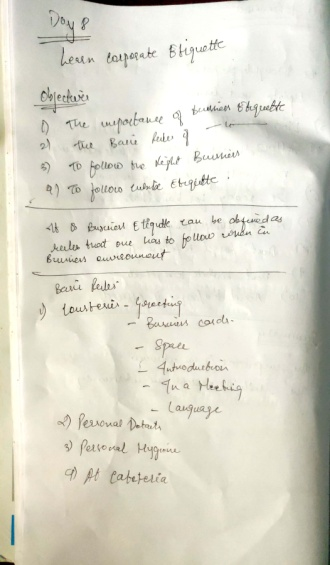 Day 8
Learn Corporate Etiquette
Objectives
1) The importance of Business Etiquette
2) The Basic Rules of
3) To follow the Right Business
4) To follow Etiquette.
Business Etiquette can be defined as
rules that one has to follow when in
Business environment
Basic Rules
1) Courtesies - Greeting
- Business cards.
- Space
- Introduction
- In a Meeting
- Language
2) Personal Details
3) Personal Hygiene
4) At Cafeteria